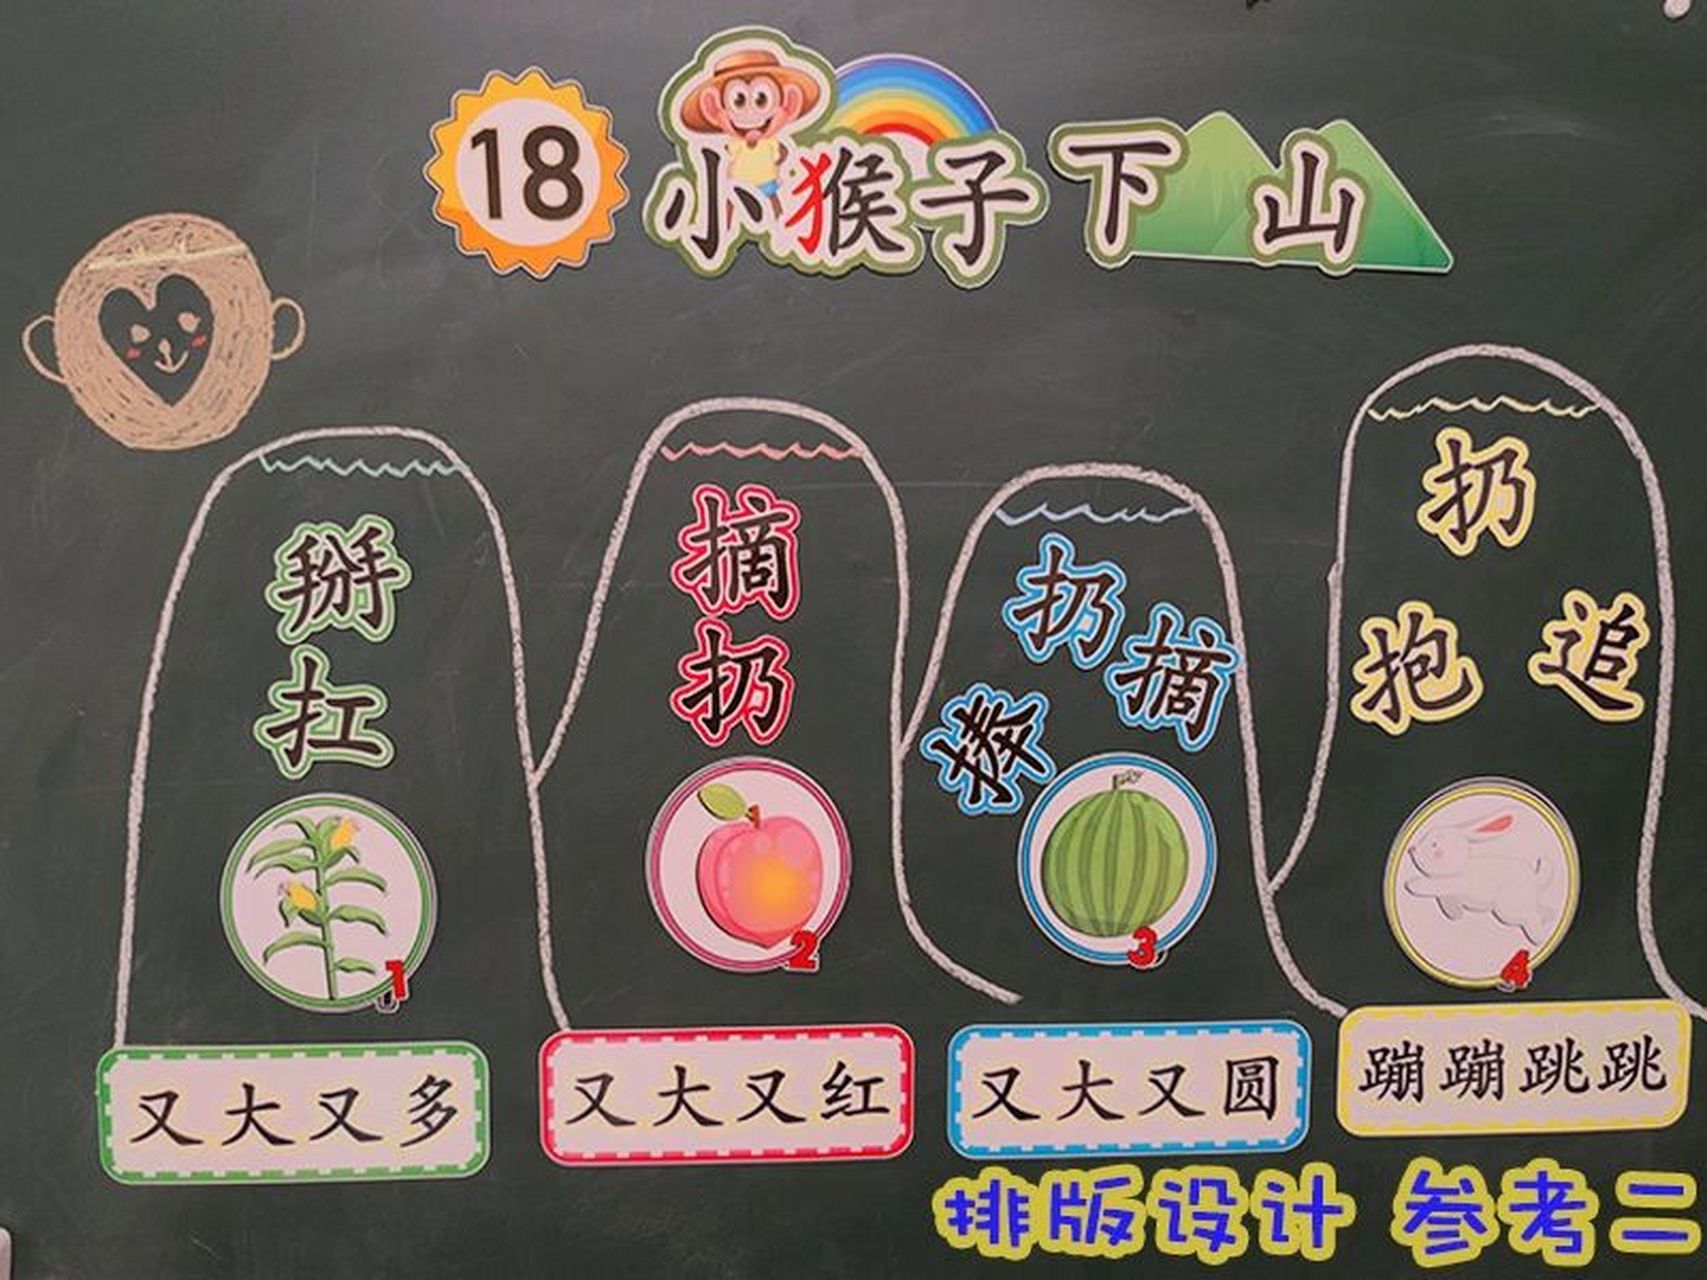 18 小猴子下山
掰
扛
1
摘
扔
2
扔
摘
3
扔
抱 追
4
又大又多
又大又红
又大又圆
蹦蹦跳跳
排版设计 参考二